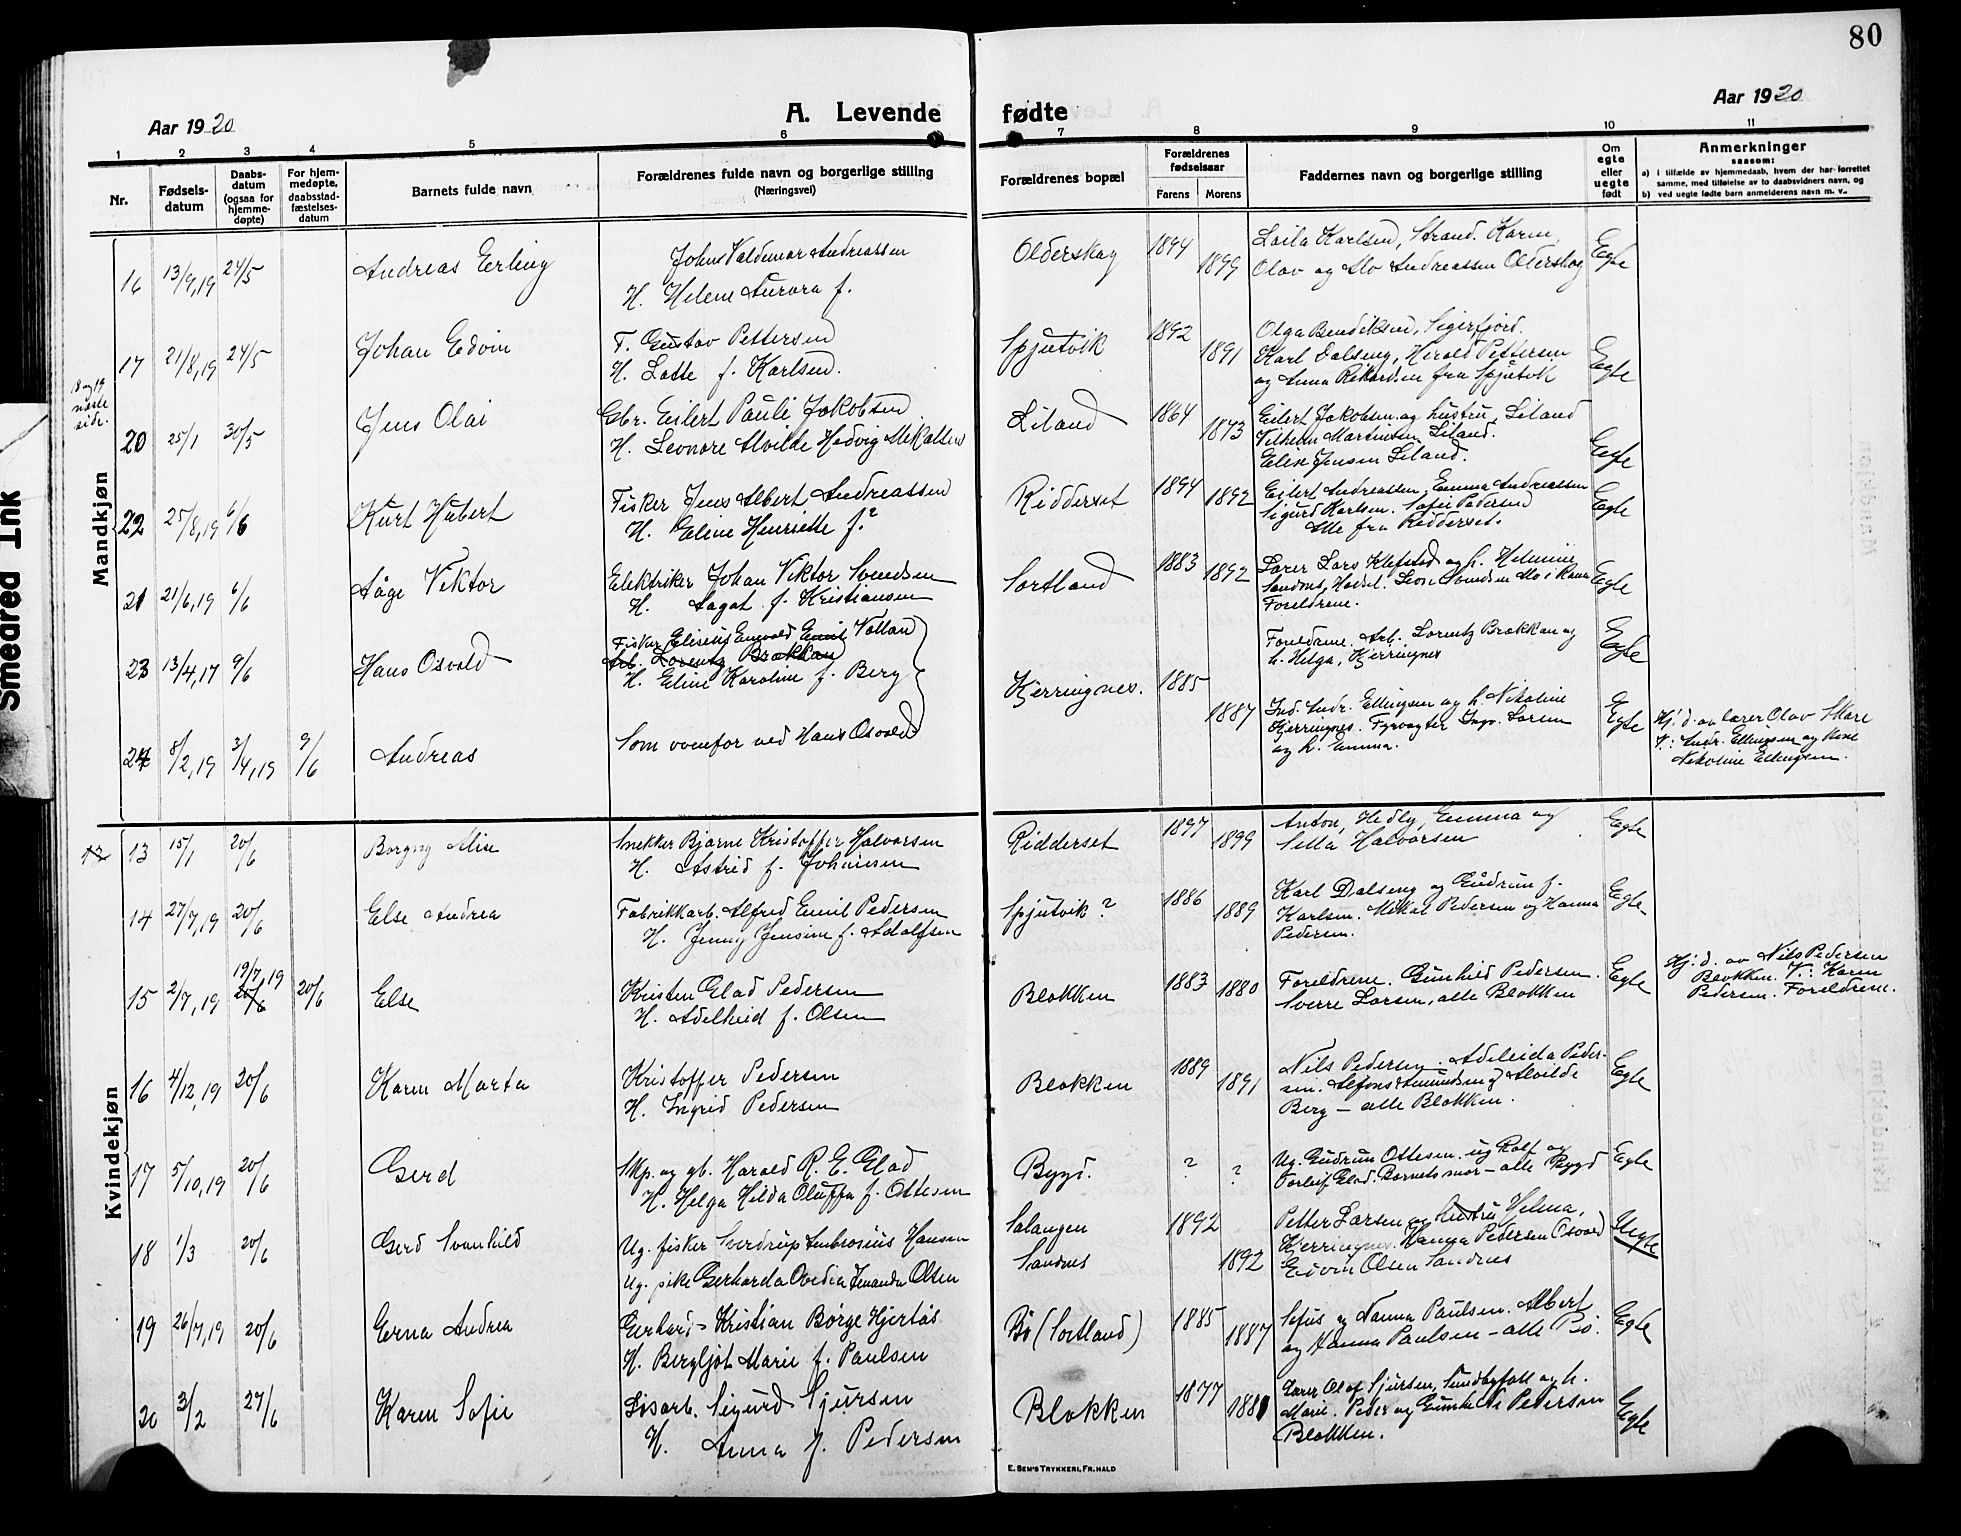 80
Aar 1920
A. Levende fødte
Aar 1920
1 2 3 4 5 6 7 8 9 10 11
Nr.
Fødsels-
datum
Daabs-
datum
(ogsaa for
hjemme-
døpte)
For hjem-
medøpte,
daabsstad-
fæstelses-
datum
Barnets fulde navn
Forældrenes fulde navn og borgerlige stilling
(Næringsvei)
Forældrenes bopæl
Forældrenes
fødselsaar
Farens Morens
Faddernes navn og borgerlige stilling
Om
egte
eller
uegte
født
Anmerkninger
saasom:
a) i tilfælde av hjemmedaab, hvem der har forrettet
samme, med tilføielse av to daabsvidners navn, og
b) ved uegte fødte barn anmelderens navn m. v..
Smeared Ink
Mandkjøn
16 13/9,19 24/5 Andreas Erling
Johan Valdemar Andreassen
H. Helene Aurora f.
Olderskog 1894 1899
Laila Karlsen, Strand. Karen,
Olav og Alv Andreassen Olderskog
Egte
17 21/8,19 24/5 Johan Edvin
F. Gustav Pettersen
H. Lotte f. Karlsen
Spjutvik 1892 1891
Olga Bendiksen, Sigerfjord.
Karl Dalseng, Herold Pettersen
og Anna Rikardsen fra Spjutvik
Egte
18 og 19
næste
side.
20 25/1 30/5 Jens Olai
Gbr. Eilert Pauli Jakobsen
H. Leonore Alvilde Hedvig
Liland 1864 1873
Eilert Jakobsen og hustru, Liland
Vilhelm Martinsen Liland.
Elise Jensen Liland.
Egte
22 25/8,19 6/6 Kurt Hubert
Fisker Jens Albert Andreassen
H. Eline Henriette f.?
Ridderset 1894 1892
Eilert Andreassen, Emma Andreassen
Sigurd Karlsen. Sofie Pedersen
Alle fra Ridderset.
Egte
21 21/6,19 6/6 Åge Viktor
Elektriker Johan Viktor Svendsen
H. Aagot f. Kristiansen
Sortland 1883 1892
Lærer Lars Klefstad og h. Helmine
Sandnes, Hadsel. Leon Svendsen Mo i Rana
Foreldrene.
Egte
23 13/4,17 9/6 Hans Osvald
Fisker Eliseus Enevold Emil Vollan
Arb. Lorentz Brekkan
H. Eline Karoline f. Berg
Kjerringnes. 1885 1887
Foreldrene. Arb. Lorentz Brekkan og
h. Helga, Kjerringnes
Egte
24 8/2,19 3/4,19 9/6 Andreas
Som ovenfor ved Hans Osvald
Ind. Andr. Ellingsen og h. Nikoline
Kjerringnes. Fyrvogter Ingv. Larsen
og h. Emma.
Egte
Hj. d. av lærer Olav Skare
V.: Andr. Ellingsen og
Nikoline Ellingsen.
Kvindekjøn
12 13 15/1 20/6 Borgny Alise
Snekker Bjarne Kristoffer Halvorsen
H. Astrid f. Johansen
Ridderset 1897 1899
Anton, Hedly, Emma og
Sella Halvorsen
Egte
14 27/7,19 20/6 Else Andrea
Fabrikkarb. Alfred Emil Pedersen
H. Jenny Jensine f. Adolfsen
Spjutvik? 1886 1889
Karl Dalseng og Gudrun f.
Karlsen. Mikal Pedersen og Hanna
Pedersen.
Egte
15 2/7,19 19/7,19 20/6 20/6 Else
Kristen Elad Pedersen
H. Adelheid f. Olsen
Blokken 1883 1880
Foreldrene. Gunhild Pedersen.
Sverre Larsen, alle Blokken
Egte
Hj. d. av Nils Pedersen
Blokken. V.: Karen
Pedersen. Foreldrene.
16 4/12,19 20/6 Karen Marta
Kristoffer Pedersen
H. Ingrid Pedersen
Blokken 1889 1891
Nils Pedersen. Adeleida Peder-
sen. Alfons Amundsen og Alvilde
Berg – alle Blokken.
Egte
17 5/10,19 20/6 Gerd
Skp. og gb. Harald R. E. Elad
H. Helga Hilda Oluffa f. Ottesen
Bygd. ? ?
Ug. Gudrun Ottesen. ug Rolf og
Torleif Elad. Barnets mor – alle Bygd
Egte
18 1/3 20/6 Gerd Svanhild
Ug. fisker Sverdrup Ambrosius Hansen
Ug. pike Gerharda Ovedia Olsen
Salangen
Sandnes
1892 1892
Petter Larsen og hustru Helena,
Kjerringnes. Hanna Pedersen Osvald
Edvin Olsen Sandnes
Uegte
19 26/7,19 20/6 Erna Andrea
Gerhard Kristian Børge Hjertås
H. Bergljot Marie f. Paulsen
Bø (Sortland) 1885 1887
Sefus og Nanna Paulsen. Albert
og Hanna Paulsen – alle Bø.
Egte
20 3/2 27/6 Karen Sofie
Løsarb. Sigurd Sjursen
H. Anna f. Pedersen
Blokken 1877 1881
Lærer Olaf Sjursen, og h.
Marie. Peder og Pedersen
Blokken.
Egte
E. SEM'S TRYKKERI, FR.HALD